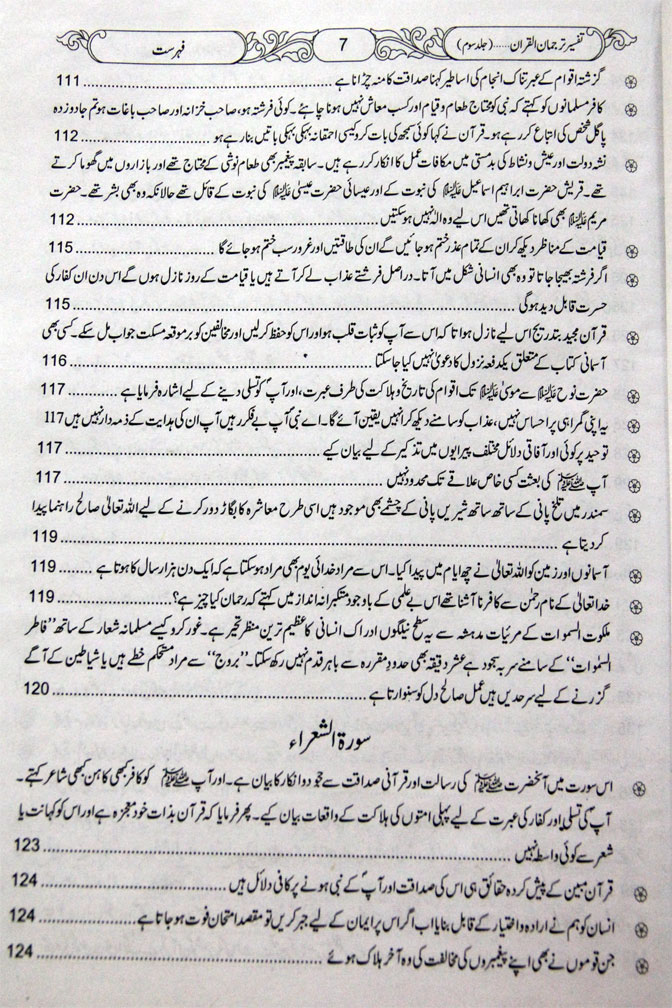 تفسیر ترجمان القرآن......(جلد سوم) 7 فہرست
گزشتہ اقوام کے عبرتناک انجام کی اساطیر کہنا صداقت کا منہ چڑانا ہے ........ 111
کافر مسلمانوں کو کہتے کہ نبی کو محتاج طعام و قیام اور کسب معاش نہیں ہونا چاہئے۔ کوئی فرشتہ ہو، صاحب خزانہ اور صاحب باغات ہو تم جادوزدہ
پاگل شخص کی اتباع کر رہے ہو۔ قرآن نے کہا کوئی سمجھ کی بات کرو کیسی احمقانہ بہکی بہکی باتیں بنا رہے ہو ........ 112
نشہ دولت اور عیش و نشاط کی بدمستی میں مکافات عمل کا انکار کر رہے ہیں۔ سابقہ پیغمبر بھی طعام نوشی کے محتاج تھے اور بازاروں میں گھوما کرتے
تھے۔ قریش حضرت ابراہیم اسماعیل علیہ السلام کی نبوت کے اور عیسائی حضرت عیسیٰ علیہ السلام کی نبوت کے قائل تھے حالانکہ وہ بھی بشر تھے۔ حضرت
مریم علیہ السلام بھی کھانا کھاتی تھیں اس لیے وہ الٰہ نہیں ہو سکتیں ........ 112
قیامت کے مناظر دیکھ کر ان کے تمام عذر ختم ہو جائیں گے ان کی طاقتیں اور غرور سب ختم ہو جائے گا ........ 115
اگر فرشتہ بھیجا جاتا تو وہ بھی انسانی شکل میں آتا۔ دراصل فرشتے عذاب لے کر آتے ہیں یا قیامت کے روز نازل ہوں گے اس دن ان کفار کی
حسرت قابل دید ہو گی ........ 115
قرآن مجید بتدریج اس لیے نازل ہوا تا کہ اس سے آپ کو ثبات قلب ہو اور اس کو حفظ کر لیں اور مخالفین کو بر موقعہ مسکت جواب مل سکے۔ کسی بھی
آسمانی کتاب کے متعلق یکدفعہ نزول کا دعویٰ نہیں کیا جا سکتا ........ 116
حضرت نوح علیہ السلام سے موسیٰ علیہ السلام تک اقوام کی تاریخ و ہلاکت کی طرف عبرت، اور آپؐ کو تسلی دینے کے لیے اشارہ فرمایا ہے ........ 117
یہ اپنی گمراہی پر احساس نہیں، عذاب کو سامنے دیکھ کر انہیں یقین آئے گا۔ اے نبیؐ آپ بے فکر رہیں آپ ان کی ہدایت کے ذمہ دار نہیں ہیں 117
توحید پر کوئی اور آفاقی دلائل مختلف پیرایوں میں تذکیر کے لیے بیان کیے ........ 117
آپ ﷺ کی بعثت کسی خاص علاقے تک محدود نہیں ........ 117
سمندر میں تلخ پانی کے ساتھ ساتھ شیریں پانی کے چشمے بھی موجود ہیں اسی طرح معاشرہ کا بگاڑ دور کرنے کے لیے اللہ تعالیٰ صالح راہنما پیدا
کر دیتا ہے ........ 119
آسمانوں اور زمین کو اللہ تعالیٰ نے چھ ایام میں پیدا کیا۔ اس سے مراد خدائی یوم بھی مراد ہو سکتا ہے کہ ایک دن ہزار سال کا ہوتا ہے ........ 119
خدا تعالیٰ کے نام رحمٰن سے کافر نا آشنا تھے اس بے علمی کے باوجود متکبرانہ انداز میں کہتے کہ رحمان کیا چیز ہے؟ ........ 119
ملکوت السموات کے مرئیات مدہشہ سے یہ سطح نیلگوں ادراک انسانی کا عظیم ترین منظر تحیر ہے۔ غور کرو کیسے مسلمانہ شعار کے ساتھ ”فاطر
السمٰوات“ کے سامنے سر بہ سجود ہے عشر دقیقہ بھی حدود مقررہ سے باہر قدم نہیں رکھ سکتا۔ ”بروج“ سے مراد مستحکم خطے ہیں یا شیاطین کے آگے
گزرنے کے لیے سرحدیں ہیں عمل صالح دل کو سنوارتا ہے ........ 120
سورۃ الشعراء
اس سورت میں آنحضرت ﷺ کی رسالت اور قرآنی صداقت سے جحود و انکار کا بیان ہے۔ اور آپ ﷺ کو کافر کبھی کاہن کبھی شاعر کہتے۔
آپؐ کی تسلی اور کفار کی عبرت کے لیے پہلی امتوں کی ہلاکت کے واقعات بیان کیے۔ پھر فرمایا کہ قرآن بذات خود معجزہ ہے اور اس کو کہانت یا
شعر سے کوئی واسطہ نہیں ........ 123
قرآن مبین کے پیش کردہ حقائق ہی اس کی صداقت اور آپؐ کے نبی ہونے پر کافی دلائل ہیں ........ 124
انسان کو ہم نے ارادہ و اختیار کے قابل بنایا اب اگر اس پر ایمان کے لیے جبر کریں تو مقصد امتحان فوت ہو جاتا ہے ........ 124
جن قوموں نے بھی اپنے پیغمبروں کی مخالفت کی وہ آخر ہلاک ہوئے ........ 124